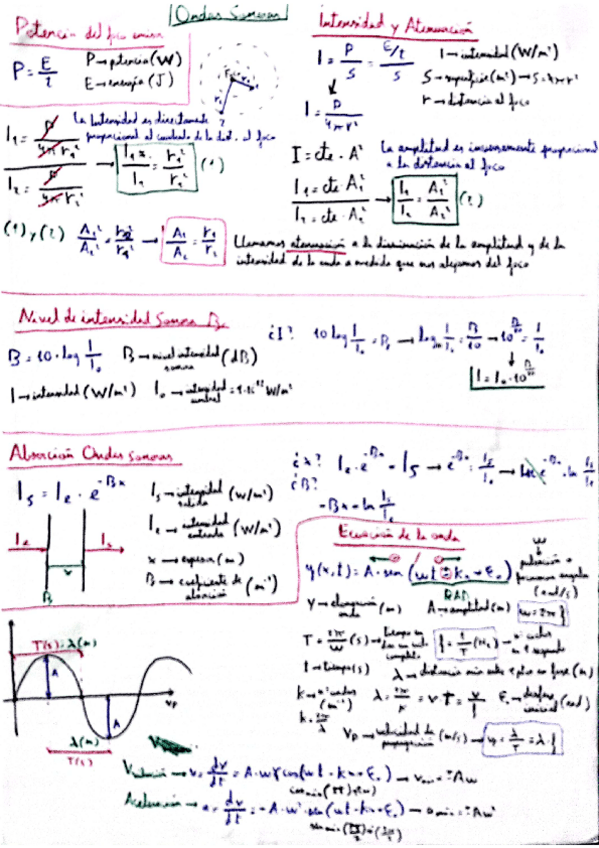 Ondas Sonoras
Potencia del foco emisor
P = E/t
P → potencia (W)
E → energía (J)
Intensidad y Atenuación
I = P/S = E/t/S
I → intensidad (W/m²)
S → superficie (m²) → S = 4πr²
r → distancia al foco
I = P/4πr²
La intensidad es directamente
proporcional al cuadrado de la dist. al foco
I₁ = P/4πr₁²
I₂ = P/4πr₂²
(1)
I = cte · A²
La amplitud es inversamente proporcional
a la distancia al foco
I₁ = cte · A₁²
I₂ = cte · A₂²
→ I₁/I₂ = A₁²/A₂² (2)
(1) y (2) A₁²/A₂² = r₂²/r₁² → A₁/A₂ = r₂/r₁
Llamamos atenuación a la disminución de la amplitud y de la
intensidad de la onda a medida que nos alejamos del foco
Nivel de intensidad Sonora
B = 10 · log I/I₀
B → nivel intensidad sonora (dB)
I → intensidad (W/m²)
I₀ → intensidad umbral = 1·10⁻¹² W/m²
¿I? 10 log I/I₀ = B → log I/I₀ = B/10 → 10^(B/10) = I/I₀
I = I₀ · 10^(B/10)
Absorción Ondas sonoras
Iₛ = Iₑ · e^(-Bx)
Iₛ → intensidad salida (W/m²)
Iₑ → intensidad entrada (W/m²)
x → espesor (m)
B → coeficiente de absorción (m⁻¹)
Iₑ
Iₛ
x
B
¿x?
¿B?
Iₑ · e^(-Bx) = Iₛ → e^(-Bx) = Iₛ/Iₑ
-Bx = ln Iₛ/Iₑ
Ecuación de la onda
y(x,t) = A · sen (wt ± kx + ξ₀)
RAD
w
pulsación o
frecuencia angular
(rad/s)
y → elongación onda (m)
A → amplitud (m)
T = 2π/w (s) → tiempo en dar un ciclo completo
f = 1/T (Hz) → nº ciclos en 1 segundo
t → tiempo (s)
λ → distancia min entre 2 ptos en fase (m)
k → nº ondas (m⁻¹)
k = 2π/λ
λ = 2π/k = v · T = v/f
ξ₀ → desfase inicial (rad)
Vp → velocidad de propagación (m/s) → vp = λ/T = λ · f
T(s) = λ(m)
A
A
vp
λ(m)
T(s)
→ v = dy/dt = A · w cos (wt - kx + ξ₀) → v max = ± Aw
Aceleración → a = dv/dt = -A · w² · sen (wt - kx + ξ₀) → a max = ± Aw²